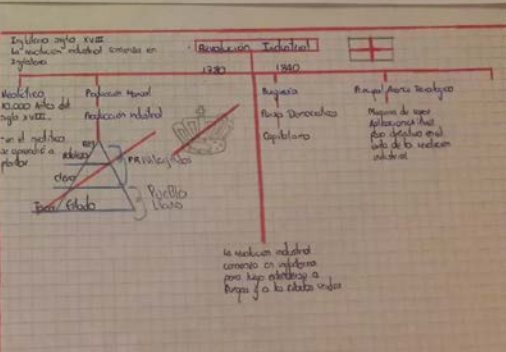 Inglaterra siglo XVIII
La revolución industrial comienza en
Inglaterra
Revolución Industrial
1780 1840
Neolítico
10.000 Antes del
siglo XVIII
-en el neolítico
se aprendió a
plantar
Producción Manual
Producción industrial
Rey
Nobleza
Clero
PRIVILEGIADOS
Estado
PUEBLO
LLANO
Burguesía
Democratico
Capitalismo
Principal Avance Tecnologico
Maquina de vapor
industrial
La revolucion industrial
comenzo en inglaterra
para luego extenderse a
Europa y a los estados unidos